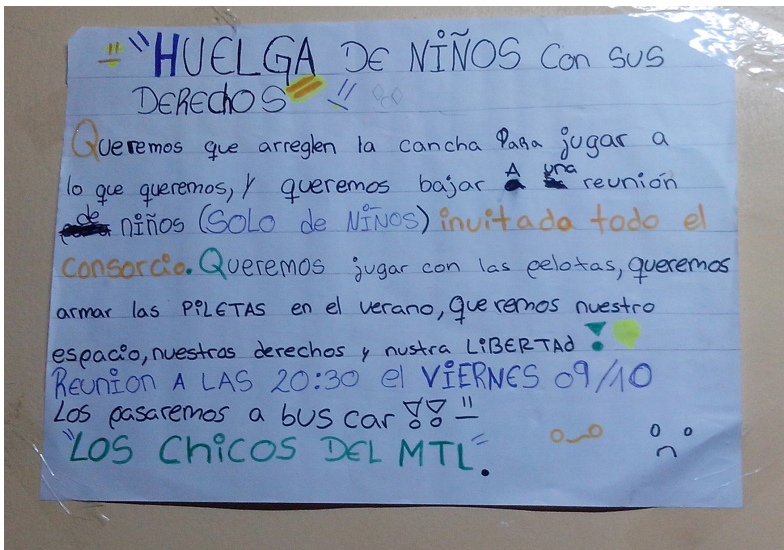 "HUELGA DE NIÑOS CON SUS
DERECHOS"
Queremos que arreglen la cancha PARA jugar a
lo que queremos, y queremos bajar A una reunión
de niños (SOLO de NIÑOS) invitada todo el
consorcio. Queremos jugar con las pelotas, queremos
armar las PILETAS en el verano, queremos nuestro
espacio, nuestros derechos y nustra LIBERTAD!
REUNION A LAS 20:30 el VIERNES 09/10
Los pasaremos a bus car!!
"LOS CHICOS DEL MTL".